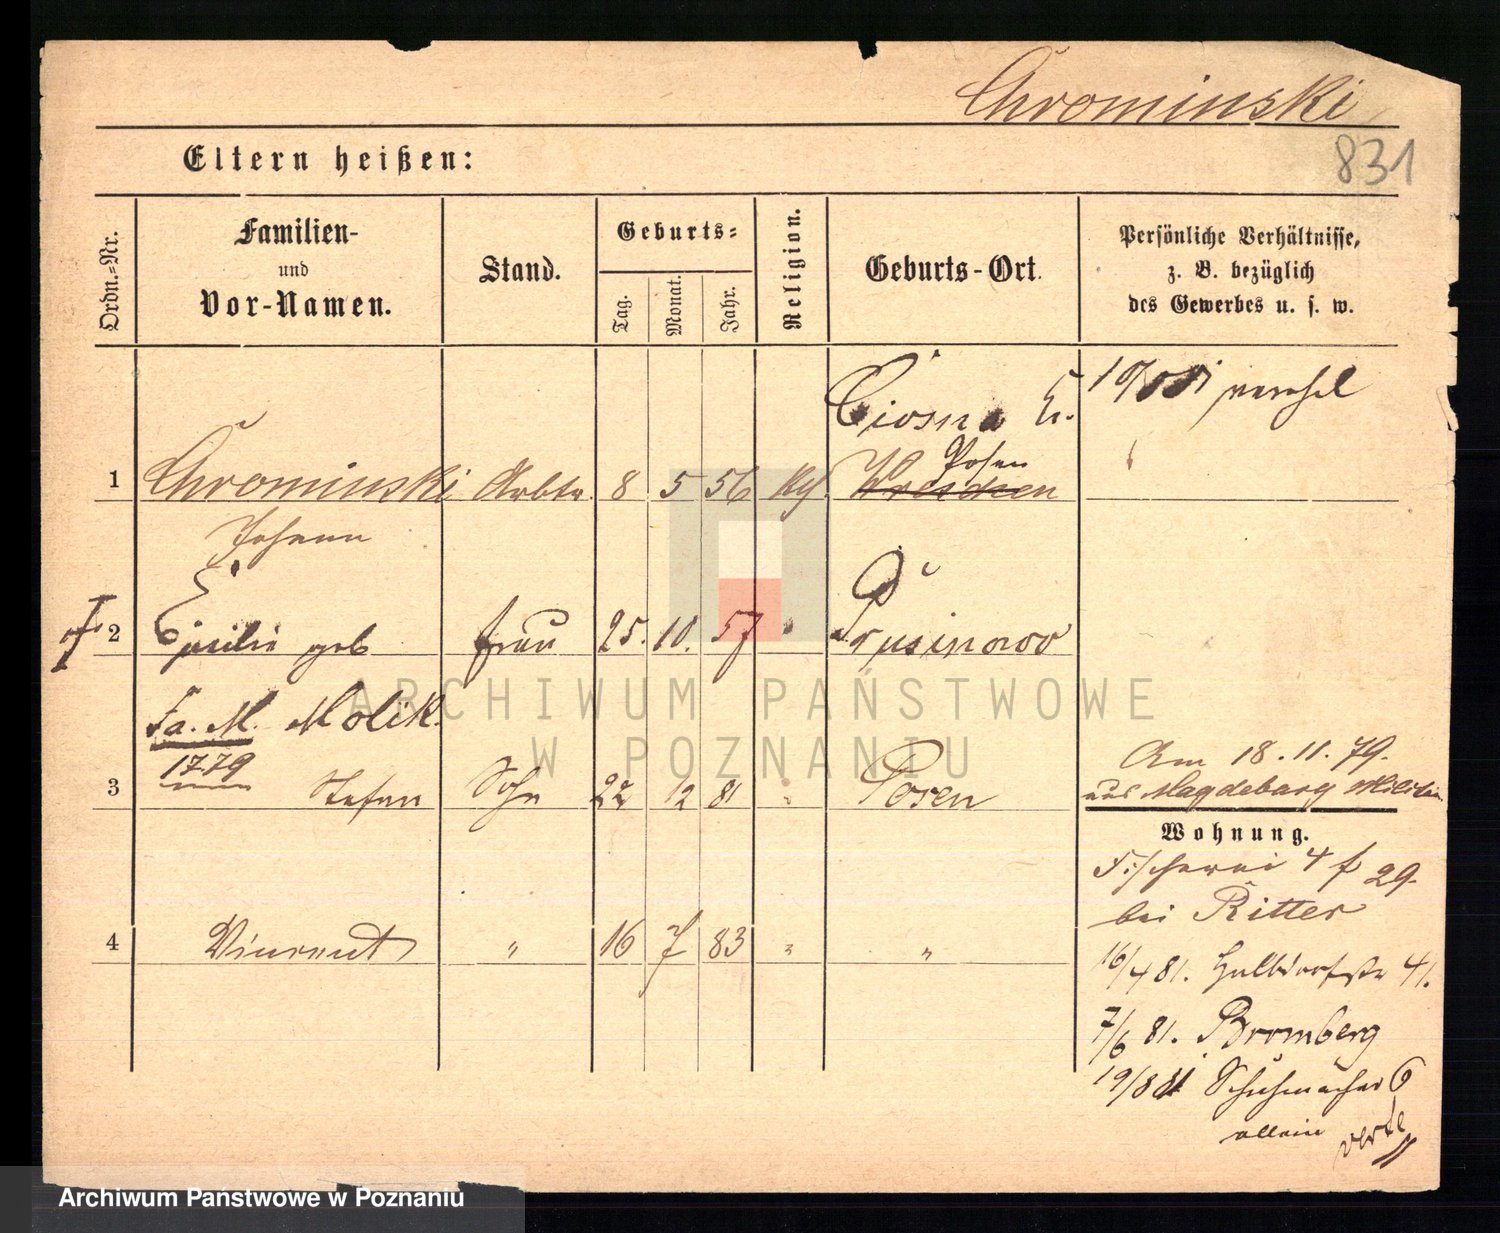 Chrominski
831
Eltern heißen:
Ordn.-Nr.
Familien-
und
Vor-Namen.
Stand.
Geburts-
Tag.
Monat.
Jahr.
Religion.
Geburts-Ort.
Persönliche Verhältnisse,
z. B. bezüglich
des Gewerbes u. s. w.
1
Chrominski
Johann
Arbtr.
8
5
56
Kth
Ciosna K.
Posen
Wreschen
verehel
2
Cäcilie geb
Fa. M. Molik.
1779
Frau
25.
10.
57
"
Prusinowo
3
Stefan
Sohn
22
12
81
"
Posen
Am 18.11.79.
aus Magdeburg Militär
Wohnung.
Fischerei 4 f 29.
bei Ritter
4
Vincent
"
16
7
83
"
"
16/4 81. Halbdorfstr 41.
7/6 81. Bromberg
19/8 81 Schuhmacher 6
allein
verte
ARCHIWUM PAŃSTWOWE
W POZNANIU
Archiwum Państwowe w Poznaniu